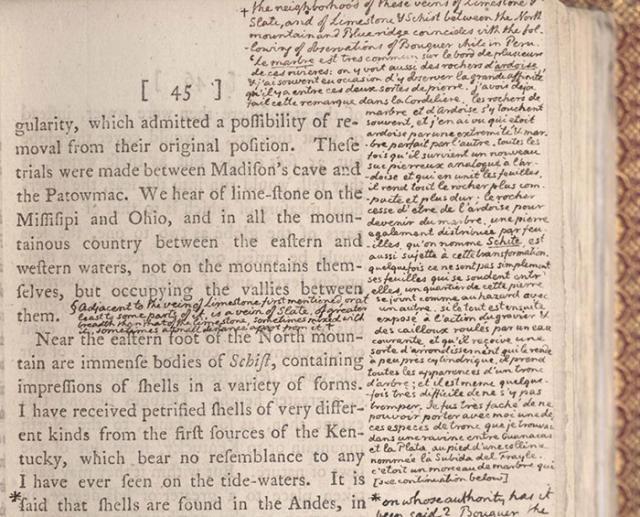 + the neighborhood of these veins of Limestone &
Slate, and of Limestone & Schist between the North
mountain and Blue ridge coincides with the fol-
lowing of observations of Bouguer while in Peru.
'Le marbre est tres commun sur le bord de plusieurs
de ces rivieres: on y voit aussi des rochers d'ardoise,
& j'ai souvent eu occasion d'y observer la grande affinité
qu'il y a entre ces deux sortes de pierre. j'avois deja
fait cette remarque dans la Cordeliere, les rochers de
marbre et d'Ardoise s'y touchent
souvent, et j'en ai vu qui etoit
ardoise par une extremité & mar-
bre parfait par l'autre. toutes les
fois qu'il survient un nouveau
suc pierreux analogue à l'ar-
doise et qui en unit les feuilles,
il rend tout le rocher plus com-
pacte et plus dur: le rocher
cesse d'etre de l'ardoise pour
devenir du marbre. une pierre
egalement distribuée par feu-
illes, qu'on nomme Schite, est
aussi sujette à cette transformation.
quelquefois ce ne sont pas simplement
ses feuilles qui se soudent entr'
elles, un quartier de cette pierre
se joint comme au hazard avec
un autre. si le tout est ensuite
exposé à l'action du gravier &
des cailloux roulés par un eau
courante, et qu'il reçoive une
sorte d'arrondissement qui le rende
a peu près cylindrique, il prend
toutes les apparences d'un tronc
d'arbre; et il est meme quelque-
fois tres difficile de ne s'y pas
tromper. Je fus tres faché de ne
pouvoir porter avec moi une de
ces especes de tronc que je trouvai
dans une ravine entre Guanacas
et la Plata, au pied d'une colline
nommée la Subida del Frayle.
c'etoit un morceau de marbre qui
[see continuation below]
*on whose authority has it
been said? Bouguer the
[ 45 ]
gularity, which admitted a poſſibility of re-
moval from their original poſition. Theſe
trials were made between Madiſon's cave and
the Patowmac. We hear of lime-ſtone on the
Miſſiſipi and Ohio, and in all the moun-
tainous country between the eaſtern and
weſtern waters, not on the mountains them-
ſelves, but occupying the vallies between
them. § Adjacent to the vein of Limestone first mentioned, or at
least to some parts of it, is a vein of Slate, of greater
breadth than that of the Limestone, sometimes mixed with
it, sometimes a small distance apart from it +
Near the eaſtern foot of the North moun-
tain are immenſe bodies of Schiſt, containing
impreſſions of ſhells in a variety of forms.
I have received petrified ſhells of very differ-
ent kinds from the firſt ſources of the Ken-
tucky, which bear no reſemblance to any
I have ever ſeen on the tide-waters. It is
*ſaid that ſhells are found in the Andes, in